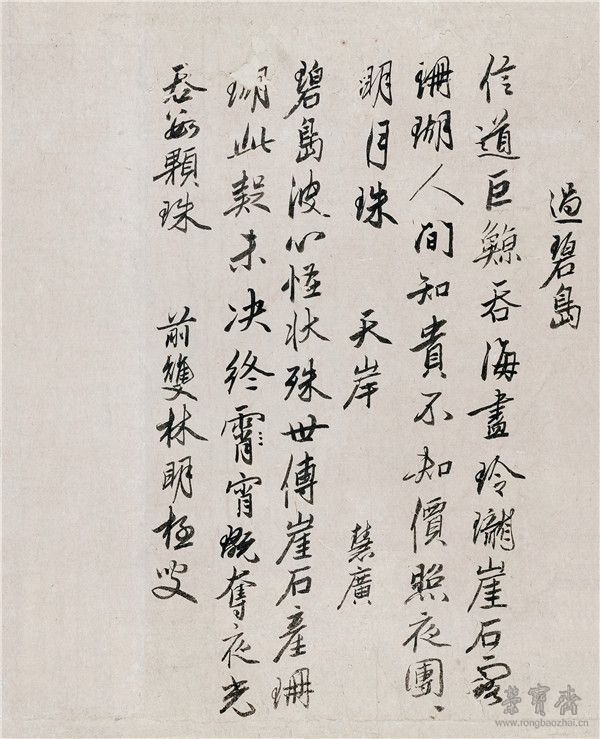 過碧島
信道巨鯨吞海盡玲瓏崖石露
珊瑚人間知貴不知價照夜團〻
明月珠 天岸 慧廣
碧島波心恠狀殊世傳崖石產珊
瑚此疑未决終霄宵奪夜光
吞顆珠 前雙林明極叟
榮寶齋
www.rongbaozhai.cn